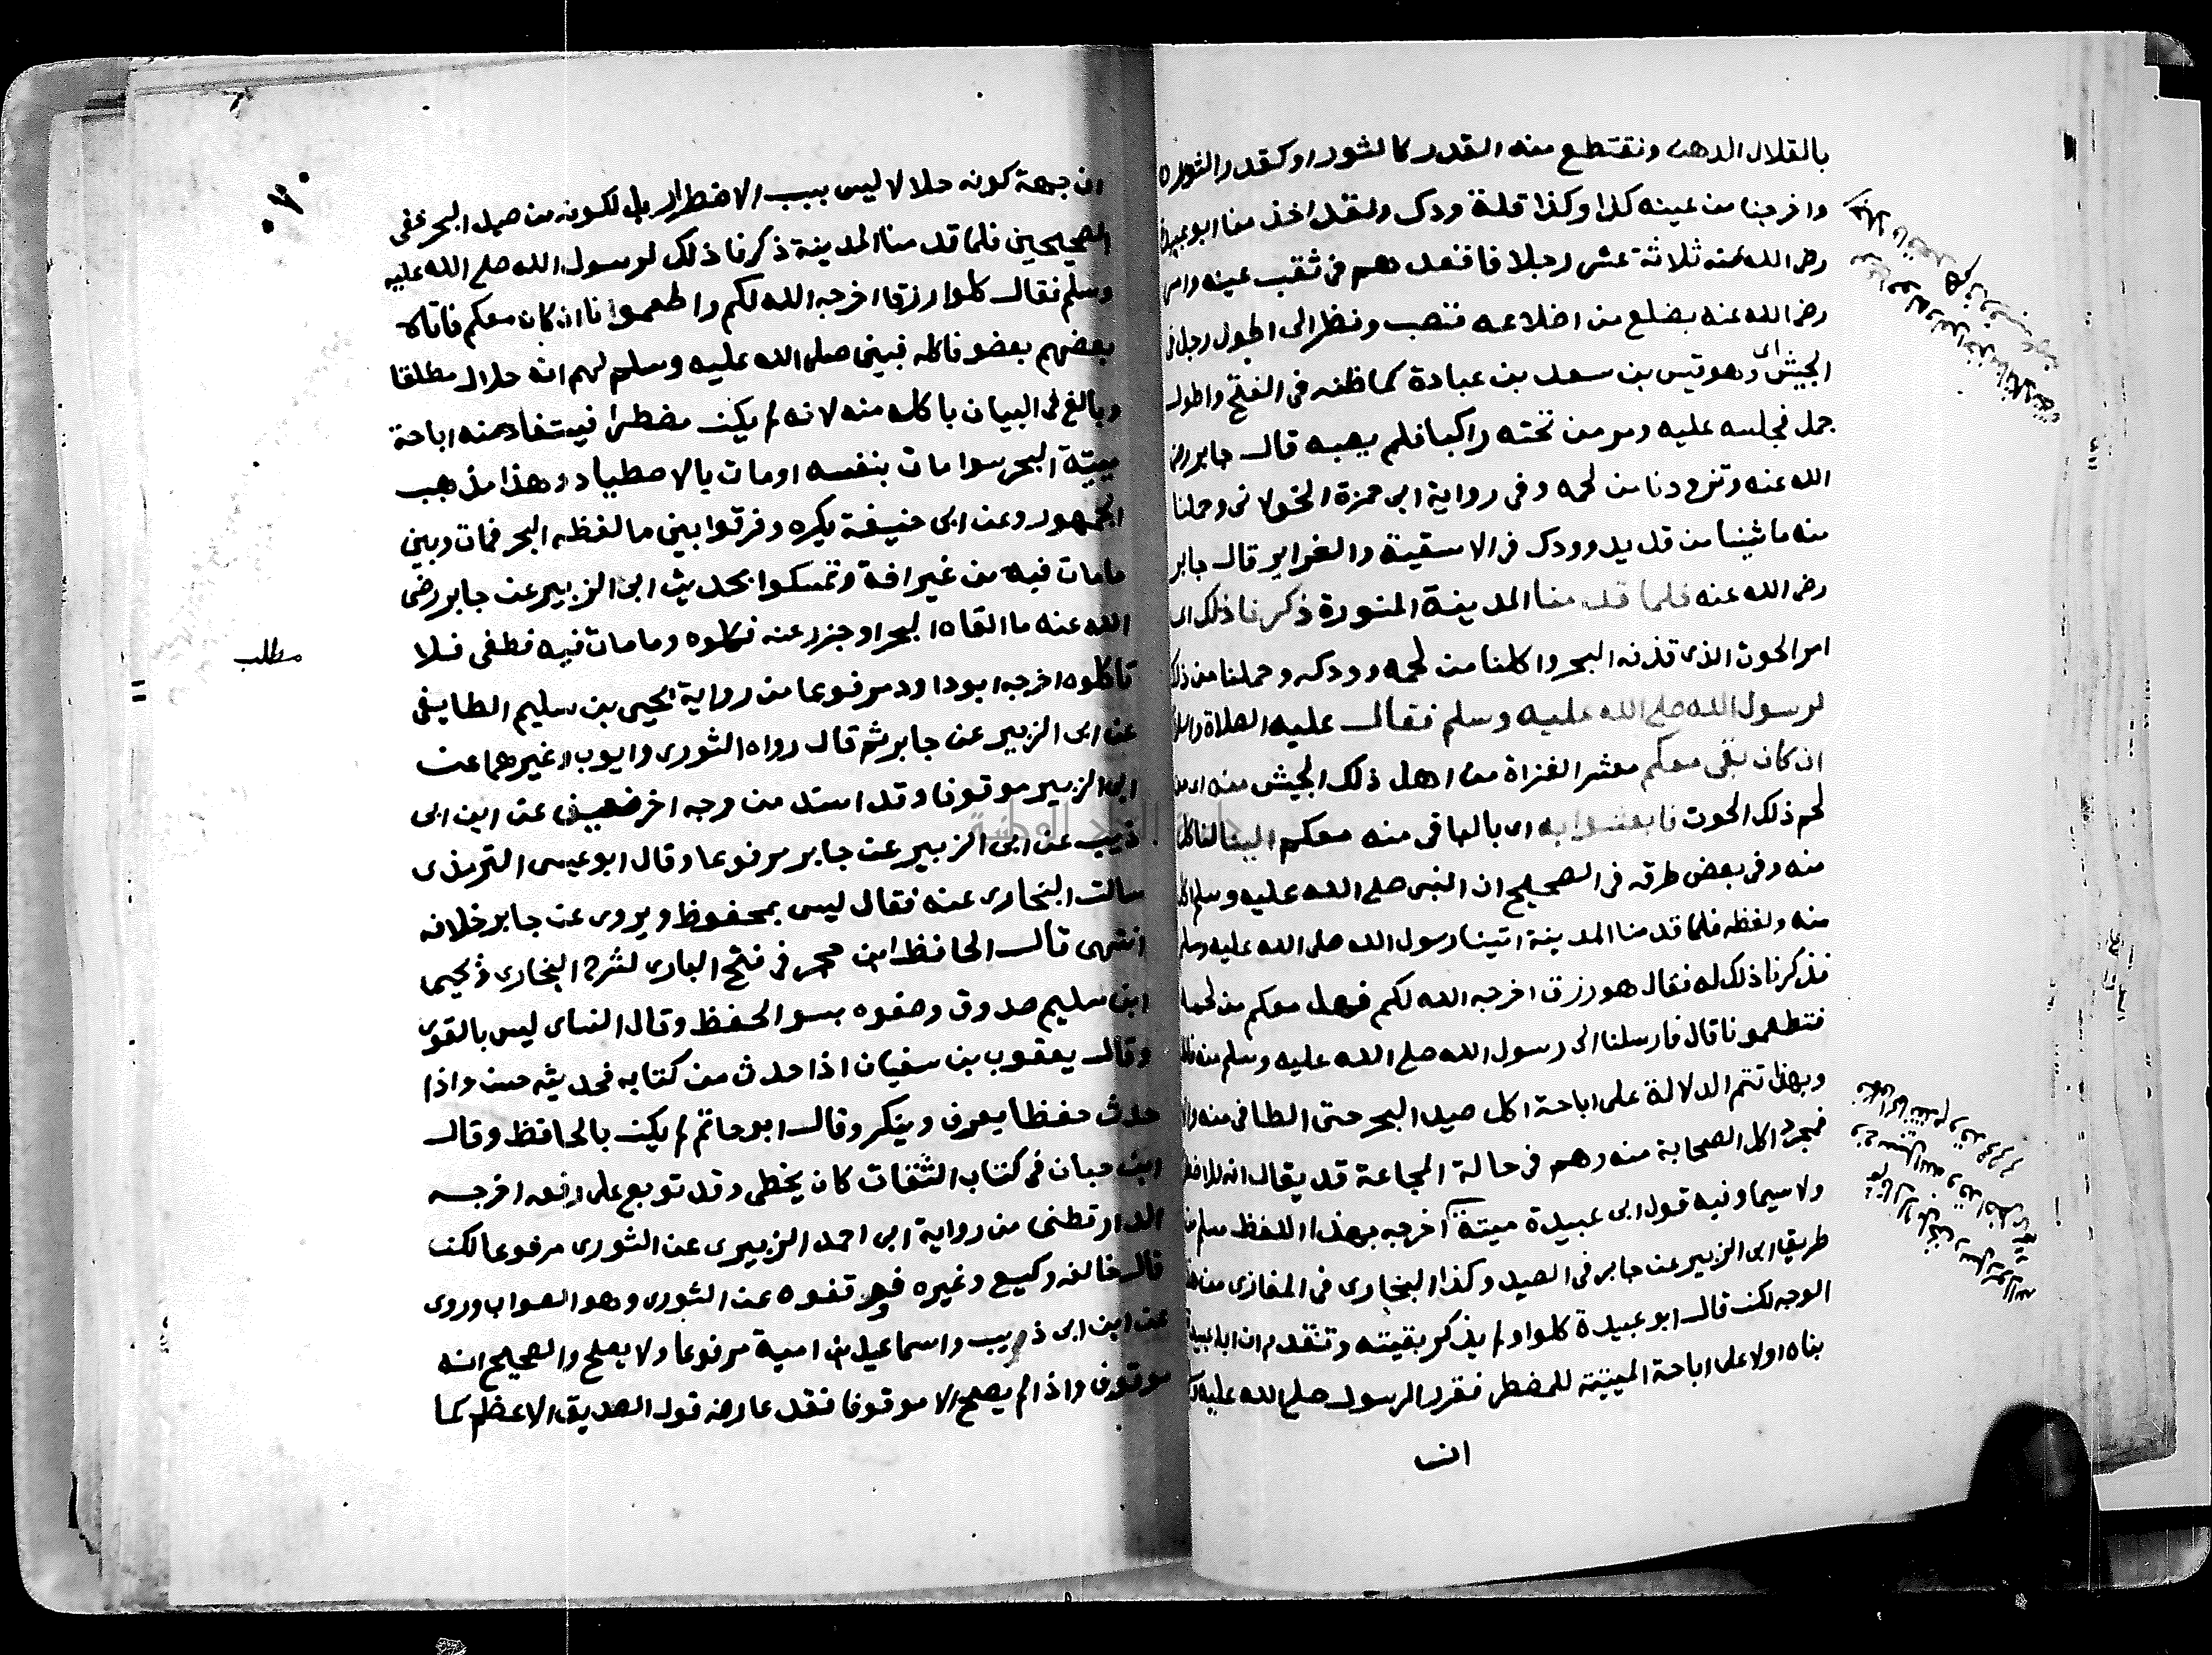 بالقلال الدهن ونقتطع منه القدر كالثور اوكقدر الثور
واخرجنا من عينه كذا وكذا قلة ودك ولقد اخذ منا ابو عبيدة
رضى الله عنه ثلاثة عشر رجلا فاقعدهم فى ثقب عينه وامر
رضى الله عنه بضلع من اضلاعه فنصب ونظر الى اطول رجل فى
الجيش اى وهو قيس بن سعد بن عبادة كما ظنه فى الفتح واطول
جمل فجلسه عليه ومر من تحته راكبا فلم يصبه قال جابر رضى
الله عنه وتزودنا من لحمه وفى رواية ابى حمزة الخولانى وحملنا
منه ما شينا من قديد وودك فى الاسقية والغراير قال جابر
رضى الله عنه فلما قدمنا المدينة المنورة ذكرنا ذلك اى
امر الحوت الذى قذفه البحر واكلنا من لحمه وودكه وحملنا من ذلك
لرسول الله صلى الله عليه وسلم فقال عليه الصلاة والسلام
ان كان بقى معكم معشر الغزاة من اهل ذلك الجيش منه اى من
لحم ذلك الحوت فابعثوا به اى بالباقى منه معكم الينا لناكل
منه وفى بعض طرقه فى الصحيح ان النبى صلى الله عليه وسلم اكل
منه ولفظه فلما قدمنا المدينة اتينا رسول الله صلى الله عليه وسلم
فذكرنا ذلك له فقال هو رزق اخرجه الله لكم فهل معكم من لحمه
فتطعمونا قال فارسلنا الى رسول الله صلى الله عليه وسلم منه فاكل
وبهذا تتم الدلالة على اباحة اكل صيد البحر حتى الطافى منه والا
فمجرد اكل الصحابة منه وهم فى حالة المجاعة قد يقال انه للاضطرار
ولاسيما وفيه قول ابى عبيدة ميتة اخرجه بهذا اللفظ مسلم من
طريق ابى الزبير عن جابر فى الصيد وكذا البخارى فى المغازى من هذا
الوجه لكن قال ابو عبيدة كلوا ولم يذكر بقيته وتقدم ان ابا عبيدة
بناه اولا على اباحة الميتة للمضطر فقرر الرسول صلى الله عليه
ان
ان جهة كونه حلالا ليس بسبب الاضطرار بل لكونه من صيد البحر ففى
الصحيحين فلما قدمنا المدينة ذكرنا ذلك لرسول الله صلى الله عليه
وسلم فقال كلوا رزقا اخرجه الله لكم واطعمونا ان كان معكم فاتاه
بعضهم بعضو فاكله فبين صلى الله عليه وسلم لهم انه حلال مطلقا
وبالغ فى البيان باكله منه لانه لم يكن مضطرا فيستفاد منه اباحة
ميتة البحر سوا مات بنفسه او مات بالاصطياد وهذا مذهب
الجمهور وعن ابى حنيفة يكره وفرقوا بين ما لفظه البحر فمات وبين
ما مات فيه من غير افة وتمسكوا بحديث ابى الزبير عن جابر رضى
الله عنه ما القاه البحر او جزر عنه فكلوه وما مات فيه فطفى فلا
مطلب
تاكلوه اخرجه ابو داود مرفوعا من رواية يحيى بن سليم الطايفى
عن ابى الزبير عن جابر ثم قال رواه الثورى وايوب وغيرهما عن
ابى الزبير موقوفا وقد اسند من وجه اخر ضعيف عن ابن ابى
ذيب عن ابى الزبير عن جابر مرفوعا وقال ابو عيسى الترمذى
سالت البخارى عنه فقال ليس بمحفوظ ويروى عن جابر خلافه
انتهى قال الحافظ ابن حجر فى فتح البارى لشرح البخارى ويحيى
ابن سليم صدوق وصفوه بسو الحفظ وقال النساى ليس بالقوى
وقال يعقوب بن سفيان اذا حدث من كتابه فحديثه حسن واذا
حدث حفظا يعرف وينكر وقال ابو حاتم لم يكن بالحافظ وقال
ابن حبان فى كتاب الثقات كان يخطى وقد توبع على رفعه اخرجه
الدارقطنى من رواية ابى احمد الزبيرى عن الثورى مرفوعا لكن
قال خالفه وكيع وغيره فوقفوه عن الثورى وهو الصواب وروى
عن ابن ابى ذويب واسماعيل بن امية مرفوعا ولا يصح والصحيح انه
موقوف واذا لم يصح الا موقوفا فقد عارضه قول الصديق الاعظم كما